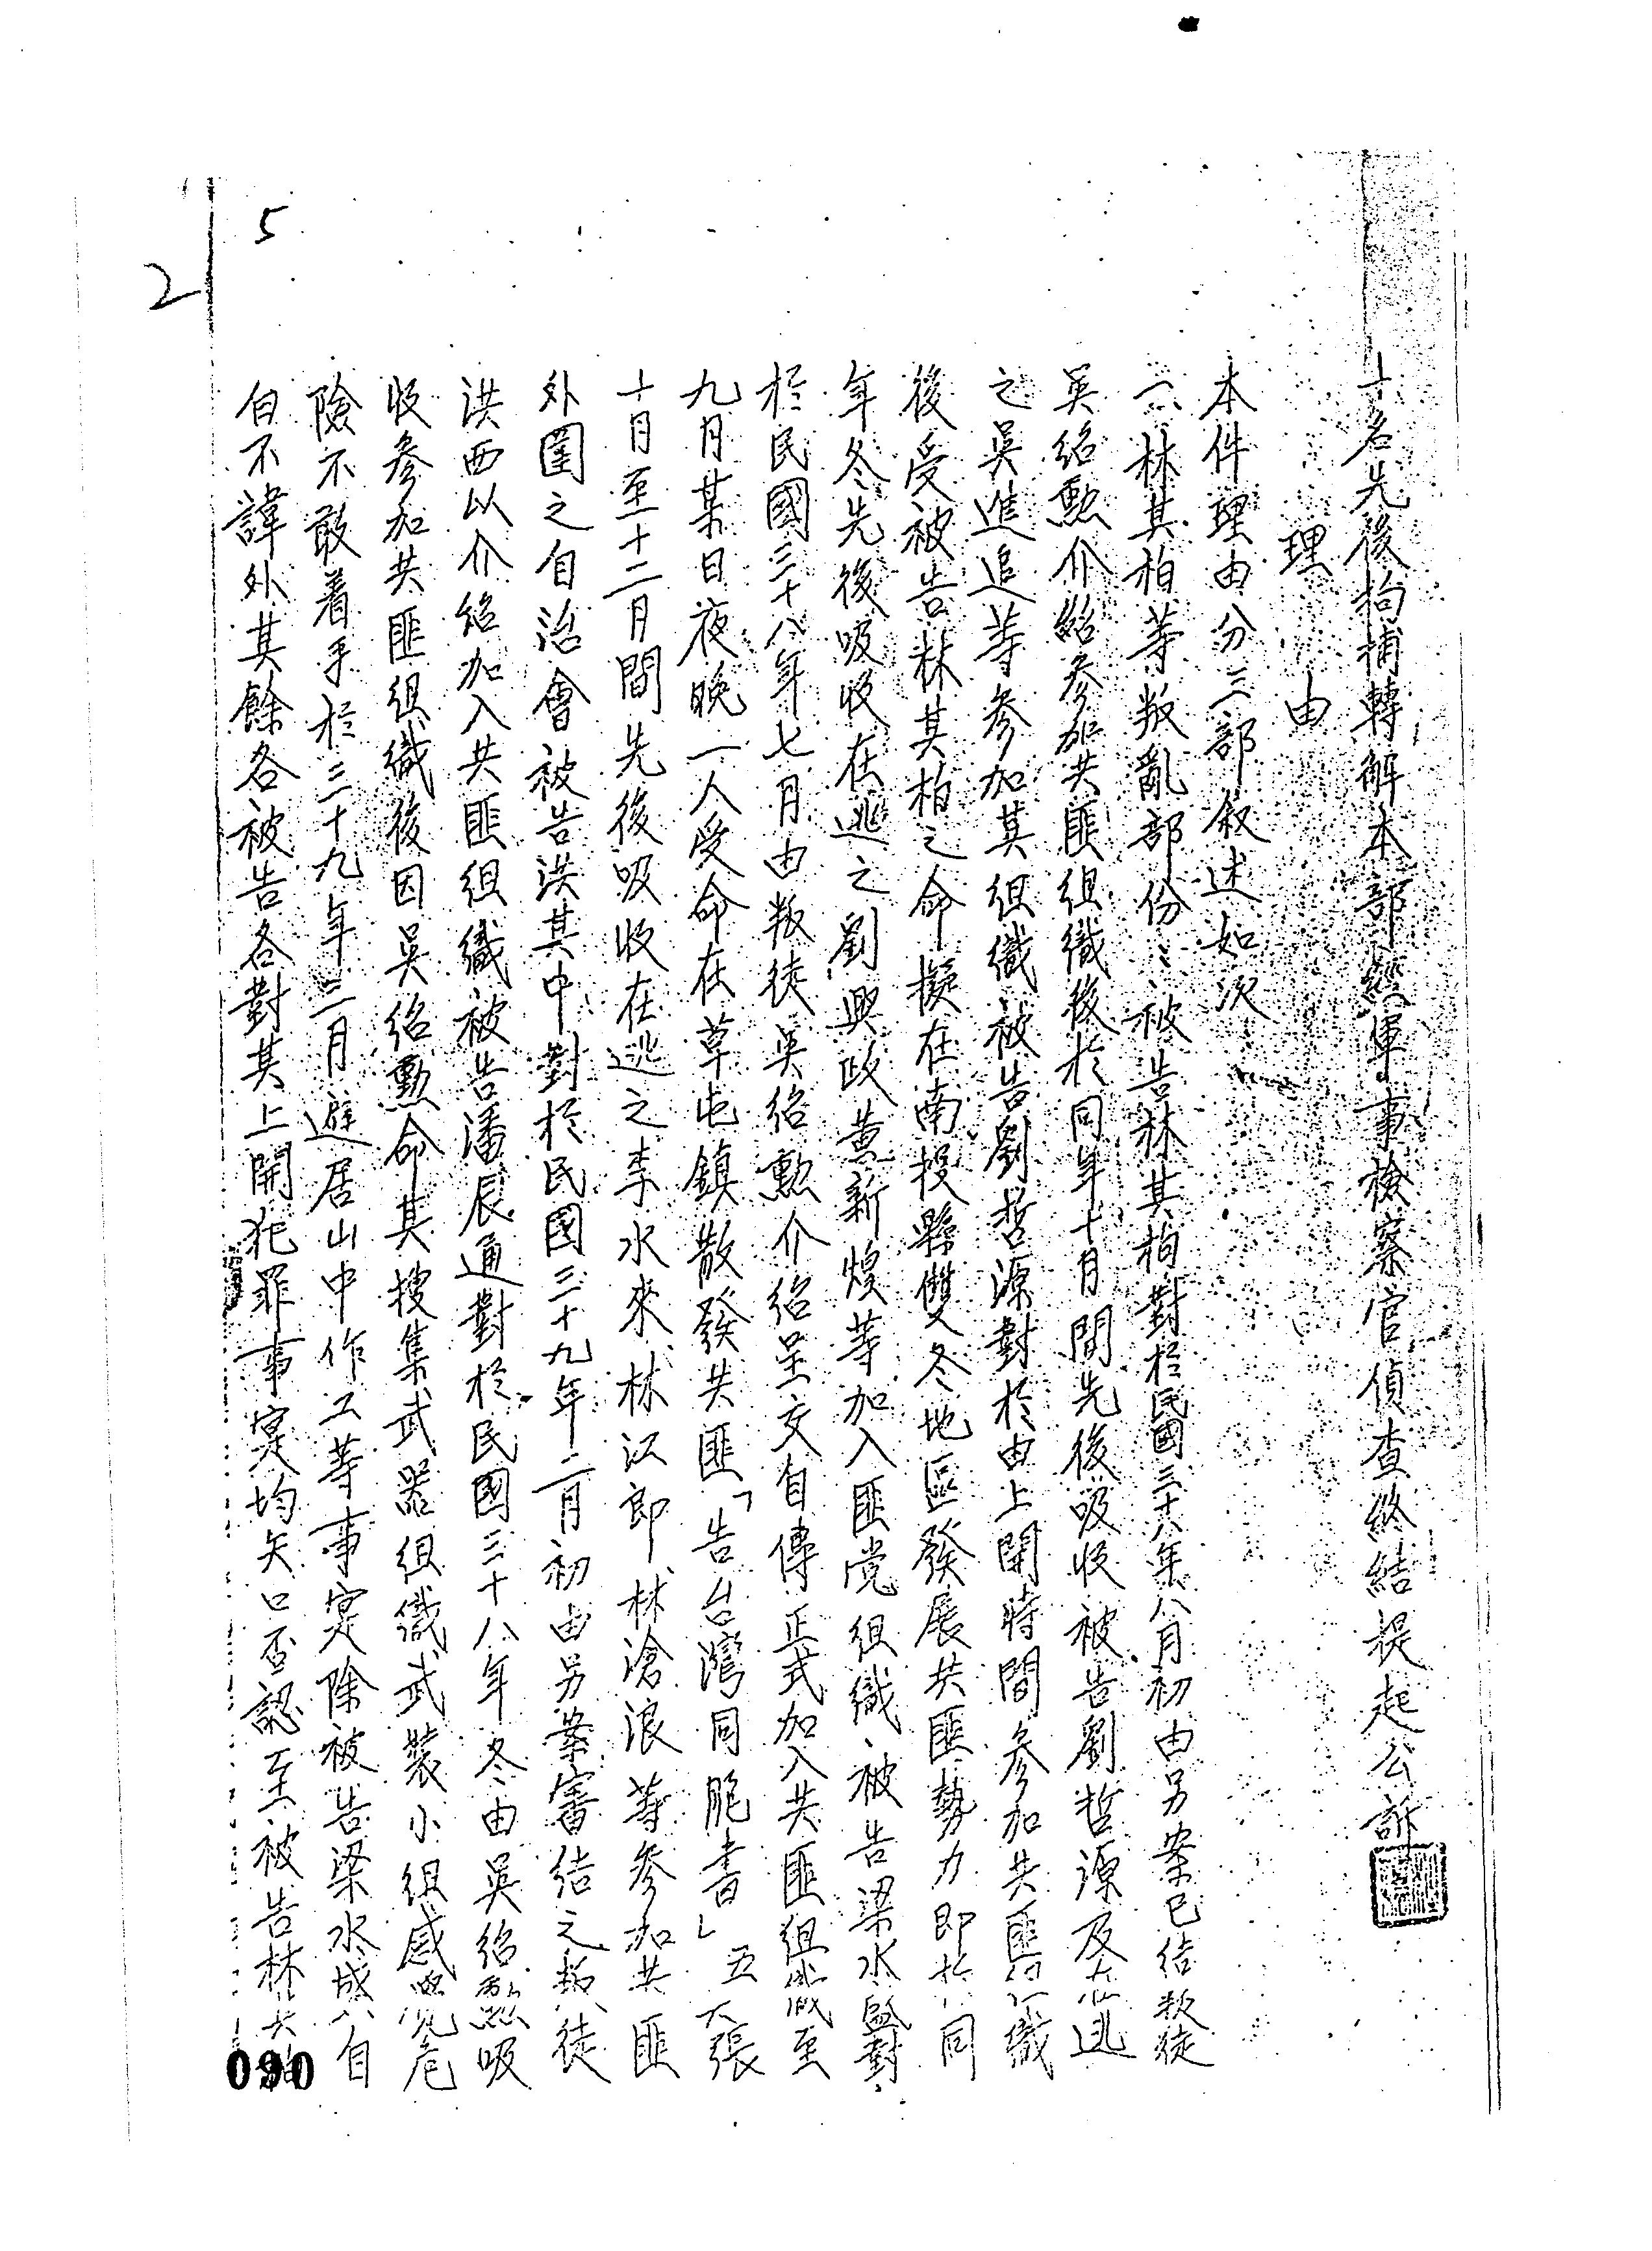 十名先後拘捕轉解本部經軍事檢察官偵查終結提起公訴
理由
本件理由分三部叙述如次
一、林其柏等叛亂部份：被告林其柏對於民國三十八年八月初由另案已結叛徒
吳紹勲介紹參加共匪組織後於同年十月間先後吸收被告劉哲源及在逃
之吳進追等參加其組織被告劉哲源對於由上開時間參加共匪組織
後受被告林其柏之命擬在南投縣雙冬地區發展共匪勢力即於同
年冬先後吸收在逃之劉興政黃新煌等加入匪党組織被告梁水盛對
於民國三十八年七月由叛徒吳紹勲介紹呈交自傳正式加入共匪組織至
九月某日夜晚一人受命在草屯鎮散發共匪「告台灣同胞書」五六張
十月至十二月間先後吸收在逃之李水來林江郎林滄浪等參加共匪
外圍之自治會被告洪其中對於民國三十九年二月初由另案審結之叛徒
洪西以介紹加入共匪組織被告潘辰通對於民國三十八年冬由吳紹勲吸
收參加共匪組織後因吳紹勲命其搜集武器組織武裝小組感覺危
險不敢着手於三十九年三月避居山中作工等事寔除被告梁水盛自
白不諱外其餘各被告各對其上開犯罪事寔均矢口否認至被告林其柏
5
2
090